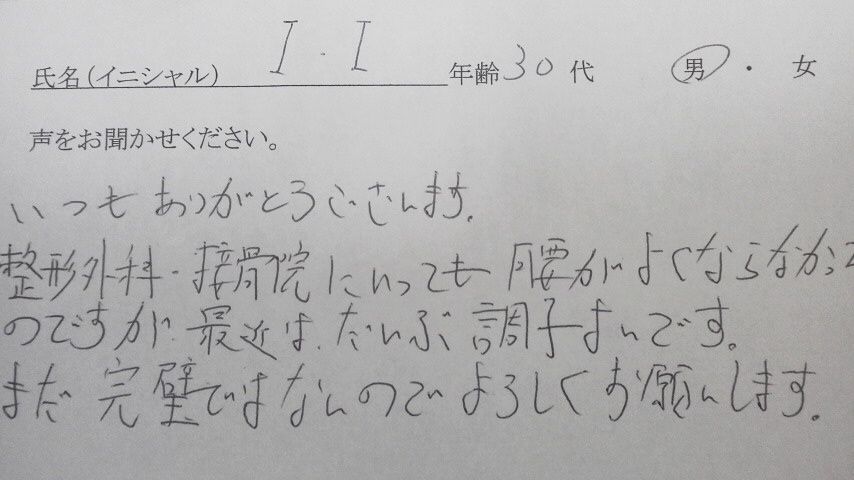 氏名(イニシャル) I・I 年齢30代 男・女
声をお聞かせください。
いつもありがとうございます。
整形外科・接骨院にいっても腰がよくならなかっ
のですが、最近は、だいぶ調子よいです。
まだ完璧ではないのでよろしくお願いします。